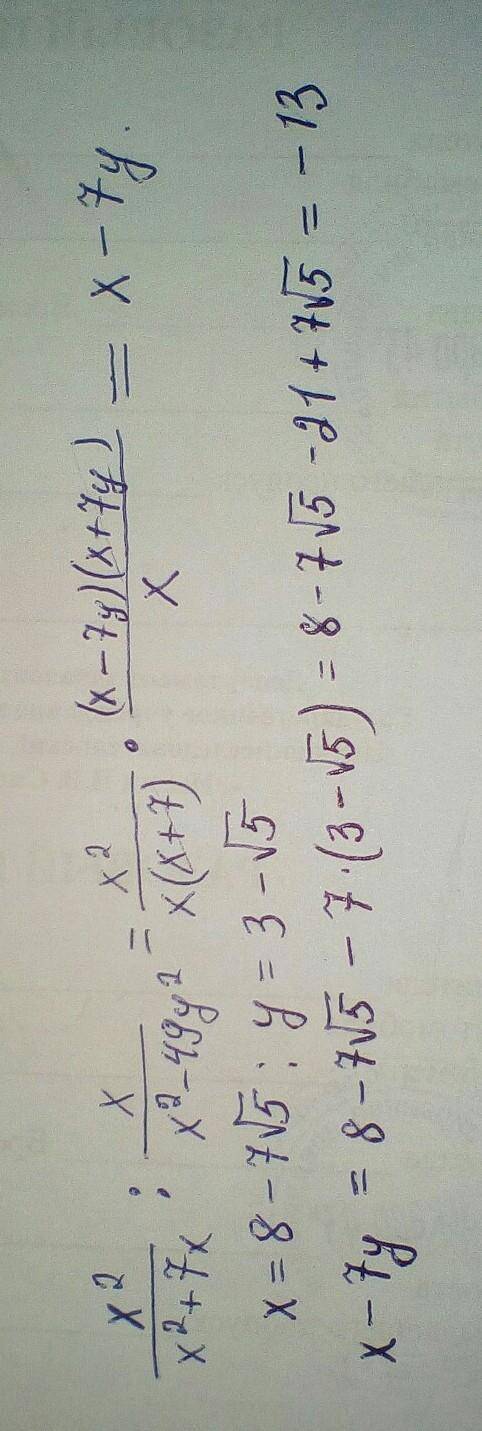 x²/(x²+7x) : x/(x²-49y²) = x²/(x(x+7)) · (x-7y)(x+7y)/x = x-7y.
x=8-7√5; y=3-√5
x-7y=8-7√5-7·(3-√5)=8-7√5-21+7√5=-13